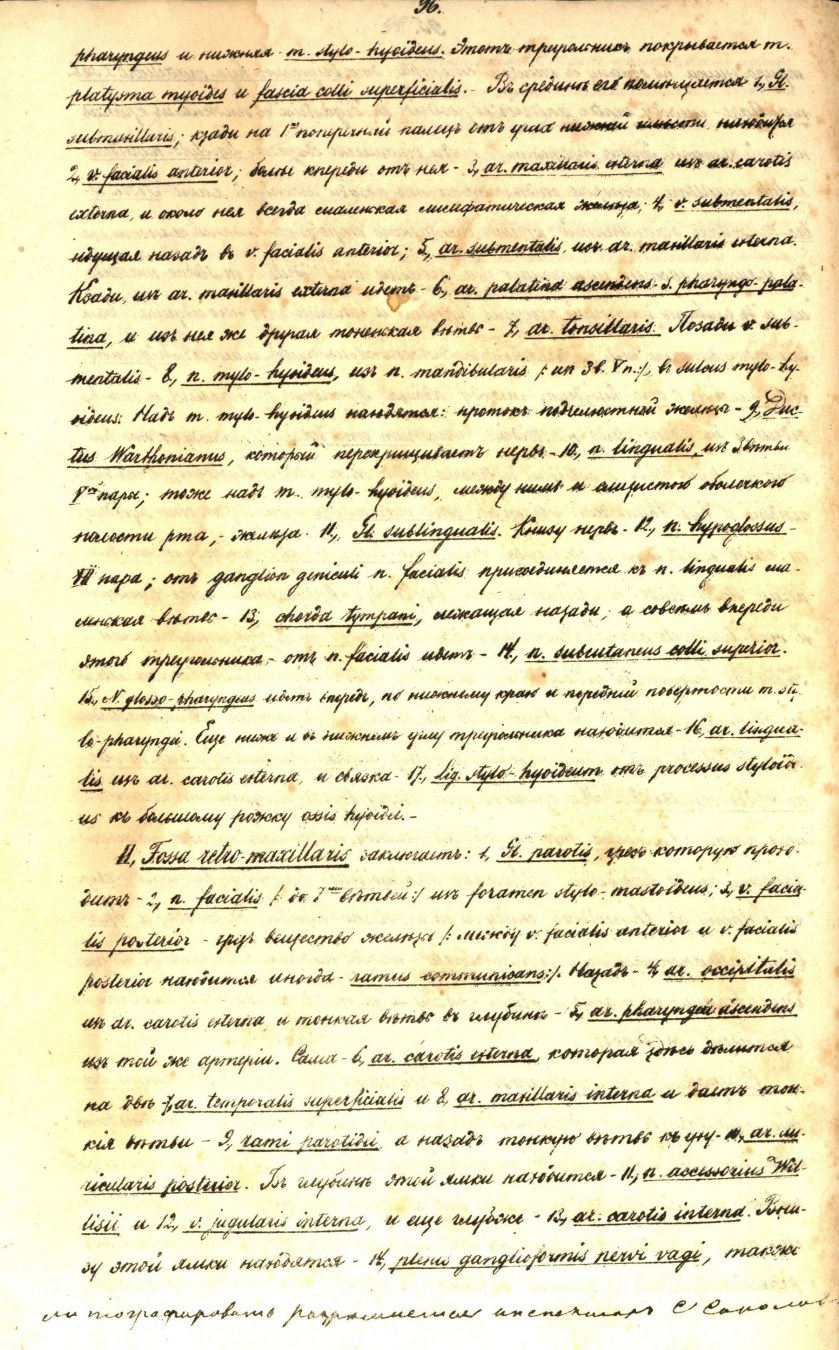 96.
pharyngeus и нижняя - m. stylo-hyoideus. Этотъ треугольникъ покрывается m.
platysma myoides и fascia colli superficialis. - Въ срединѣ его помѣщается 1, Gl.
submaxillaris; кзади на 1 поперечный палецъ отъ угла нижней челюсти находится
2, v. facialis anterior; болѣе кпереди отъ нея - 3, ar. maxillaris externa изъ ar. carotis
externa, и около нея всегда маленькая лимфатическая железа; 4, v. submentalis,
идущая назадъ въ v. facialis anterior; 5, ar. submentalis, изъ ar. maxillaris externa.
Кзади, изъ ar. maxillaris externa идетъ - 6, ar. palatina ascendens s. pharyngo-pala-
tina, и изъ нея же другая тоненькая вѣтвь - 7, ar. tonsillaris. Позади v. sub-
mentalis - 8, n. mylo-hyoideus, изъ n. mandibularis /: изъ 3 в. V п:/, въ sulcus mylo-hy-
oideus. Надъ m. mylo-hyoideus находятся: протокъ подчелюстной железы - 9, Duc-
tus Warthonianus, который перекрещиваетъ нервъ - 10, n. lingualis, изъ 3 вѣтви
V ой пары; тоже надъ m. mylo-hyoideus, между нимъ и слизистою оболочкою
полости рта, - железа 11, Gl. sublingualis. Книзу нервъ - 12, n. hypoglossus -
XII пара; отъ ganglion geniculi n. facialis присоединяется къ n. lingualis ма-
ленькая вѣтвь - 13, chorda tympani, лежащая назади; а совсѣмъ впереди
этого треугольника - отъ n. facialis идетъ - 14, n. subcutaneus colli superior.
15, N. glosso-pharyngeus идетъ впередъ, по нижнему краю и передней поверхности m. sty-
lo-pharyngei. Еще ниже и въ нижнемъ углу треугольника находится - 16, ar. lingua-
lis изъ ar. carotis externa, и связка - 17, lig. stylo-hyoideum отъ processus styloide-
us къ большому рожку ossis hyoidei. -
II, Fossa retro-maxillaris заключаетъ: 1, Gl. parotis, чрезъ которую прохо-
дитъ - 2, n. facialis /: до 7 вѣтвей:/ изъ foramen stylo-mastoideus; 3, v. facia-
lis posterior - чрезъ вещество железы /: между v. facialis anterior и v. facialis
posterior находится иногда - ramus communicans:/. Назадъ - 4, ar. occipitalis
изъ ar. carotis externa и тонкая вѣтвь въ глубинѣ - 5, ar. pharyngea ascendens
изъ той же артеріи. Сама - 6, ar. carotis externa, которая здѣсь дѣлится
на двѣ - 7, ar. temporalis superficialis и 8, ar. maxillaris interna и даетъ тон-
кія вѣтви - 9, rami parotidei, а назадъ тонкую вѣтвь къ уху - 10, ar. au-
ricularis posterior. Въ глубинѣ этой ямки находится - 11, n. accessorius Wil-
lisii и 12, v. jugularis interna, и еще глубже - 13, ar. carotis interna. Вни-
зу этой ямки находятся - 14, plexus ganglioformis nervi vagi, также
литографировать разрѣшается инспекторъ С Соколовъ